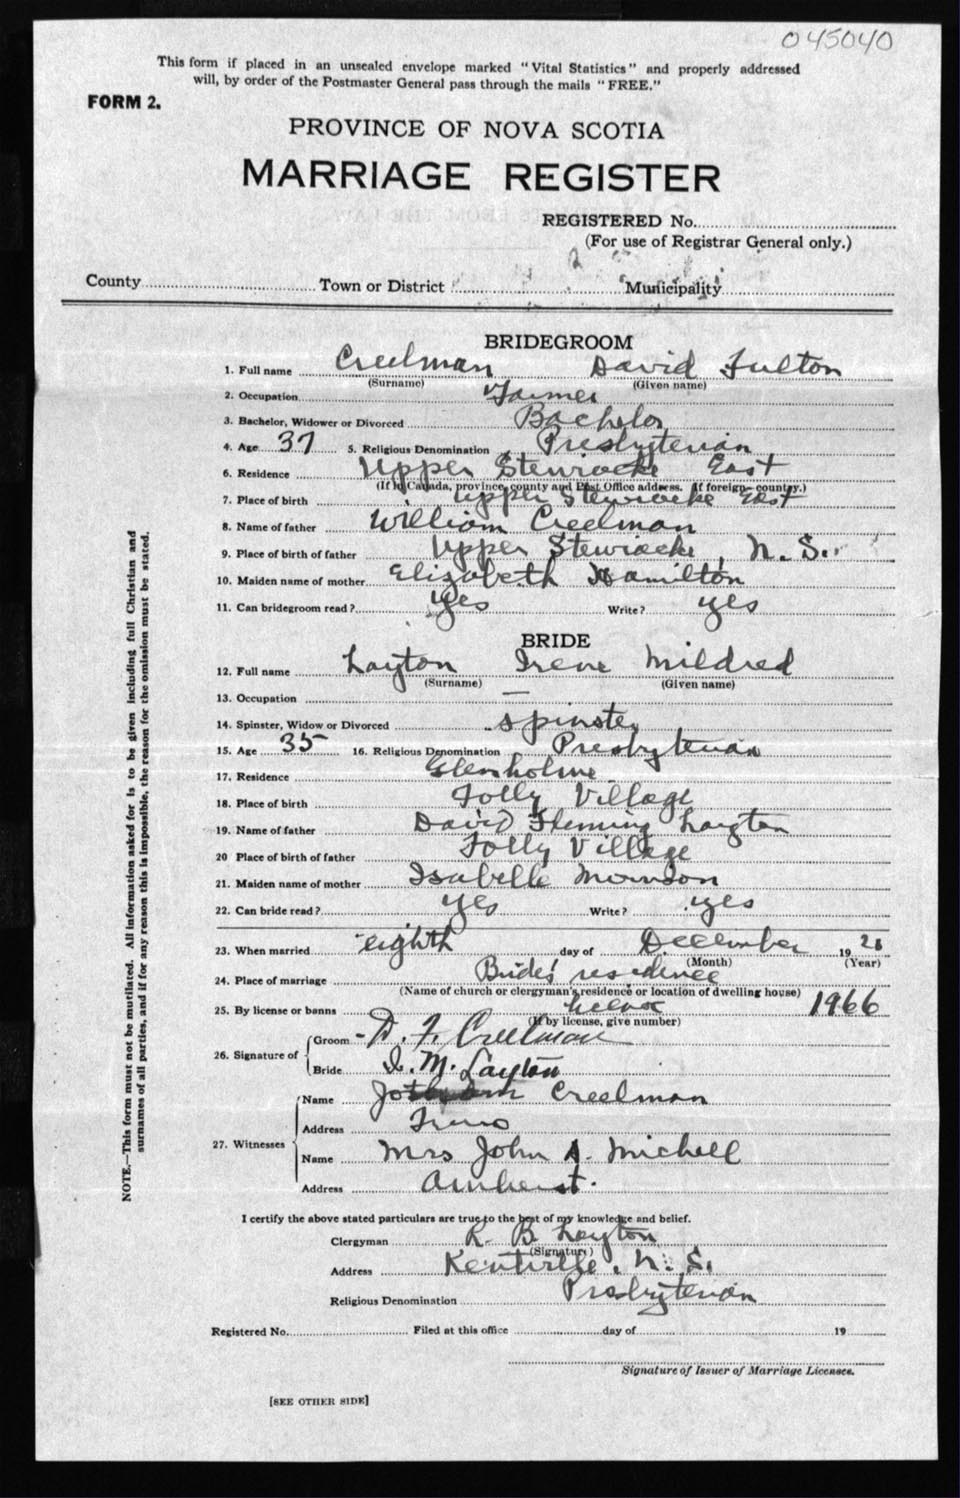 045040
This form if placed in an unsealed envelope marked "Vital Statistics" and properly addressed
will, by order of the Postmaster General pass through the mails "FREE."
FORM 2.
PROVINCE OF NOVA SCOTIA
MARRIAGE REGISTER
REGISTERED No.
(For use of Registrar General only.)
County Town or District Municipality
BRIDEGROOM
1. Full name Creelman David Fulton
(Surname) (Given name)
2. Occupation Farmer
3. Bachelor, Widower or Divorced Bachelor
4. Age 37 5. Religious Denomination Presbyterian
6. Residence Upper Stewiacke East
(If in Canada, province, county and Post Office address. If foreign—country.)
7. Place of birth Upper Stewiacke East
8. Name of father William Creelman
9. Place of birth of father Upper Stewiacke, N. S.
10. Maiden name of mother Elizabeth Hamilton
11. Can bridegroom read? yes Write? yes
BRIDE
12. Full name Layton Irene Mildred
(Surname) (Given name)
13. Occupation —
14. Spinster, Widow or Divorced Spinster
15. Age 35 16. Religious Denomination Presbyterian
17. Residence Glenholme
18. Place of birth Folly Village
19. Name of father David Fleming Layton
20 Place of birth of father Folly Village
21. Maiden name of mother Isabelle Morrison
22. Can bride read? yes Write? yes
23. When married eighth day of December 19
(Month) (Year)
24. Place of marriage Brides' residence
(Name of church or clergyman's residence or location of dwelling house)
25. By license or banns license 1966
(If by license, give number)
26. Signature of Groom D. F. Creelman
Bride I. M. Layton
27. Witnesses Name Creelman
Address Truro
Name Mrs John A. Michell
Address Amherst.
I certify the above stated particulars are true to the best of my knowledge and belief.
Clergyman R. B. Layton
(Signature)
Address Kentville, N. S.
Religious Denomination Presbyterian
Registered No. Filed at this office day of 19
Signature of Issuer of Marriage Licenses.
[SEE OTHER SIDE]
NOTE.—This form must not be mutilated. All information asked for is to be given including full Christian and
surnames of all parties, and if for any reason this is impossible, the reason for the omission must be stated.